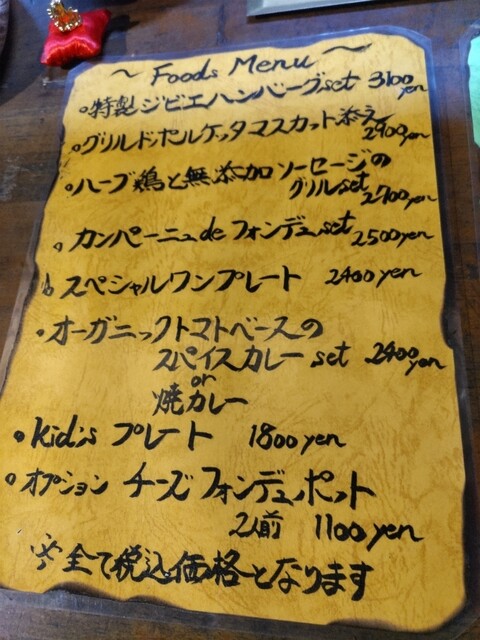 ～ Foods Menu ～
○特製ジビエハンバーグset 3100yen
○グリルドポルケッタマスカット添え 2900yen
○ハーブ鶏と無添加ソーセージの
グリルset 2700yen
○カンパーニュdeフォンデュset 2500yen
○スペシャルワンプレート 2400yen
○オーガニックトマトベースの
スパイスカレーset 2400yen
or
焼カレー
○Kid's プレート 1800yen
○オプション チーズフォンデュポット
2人前 1100yen
※全て税込価格となります